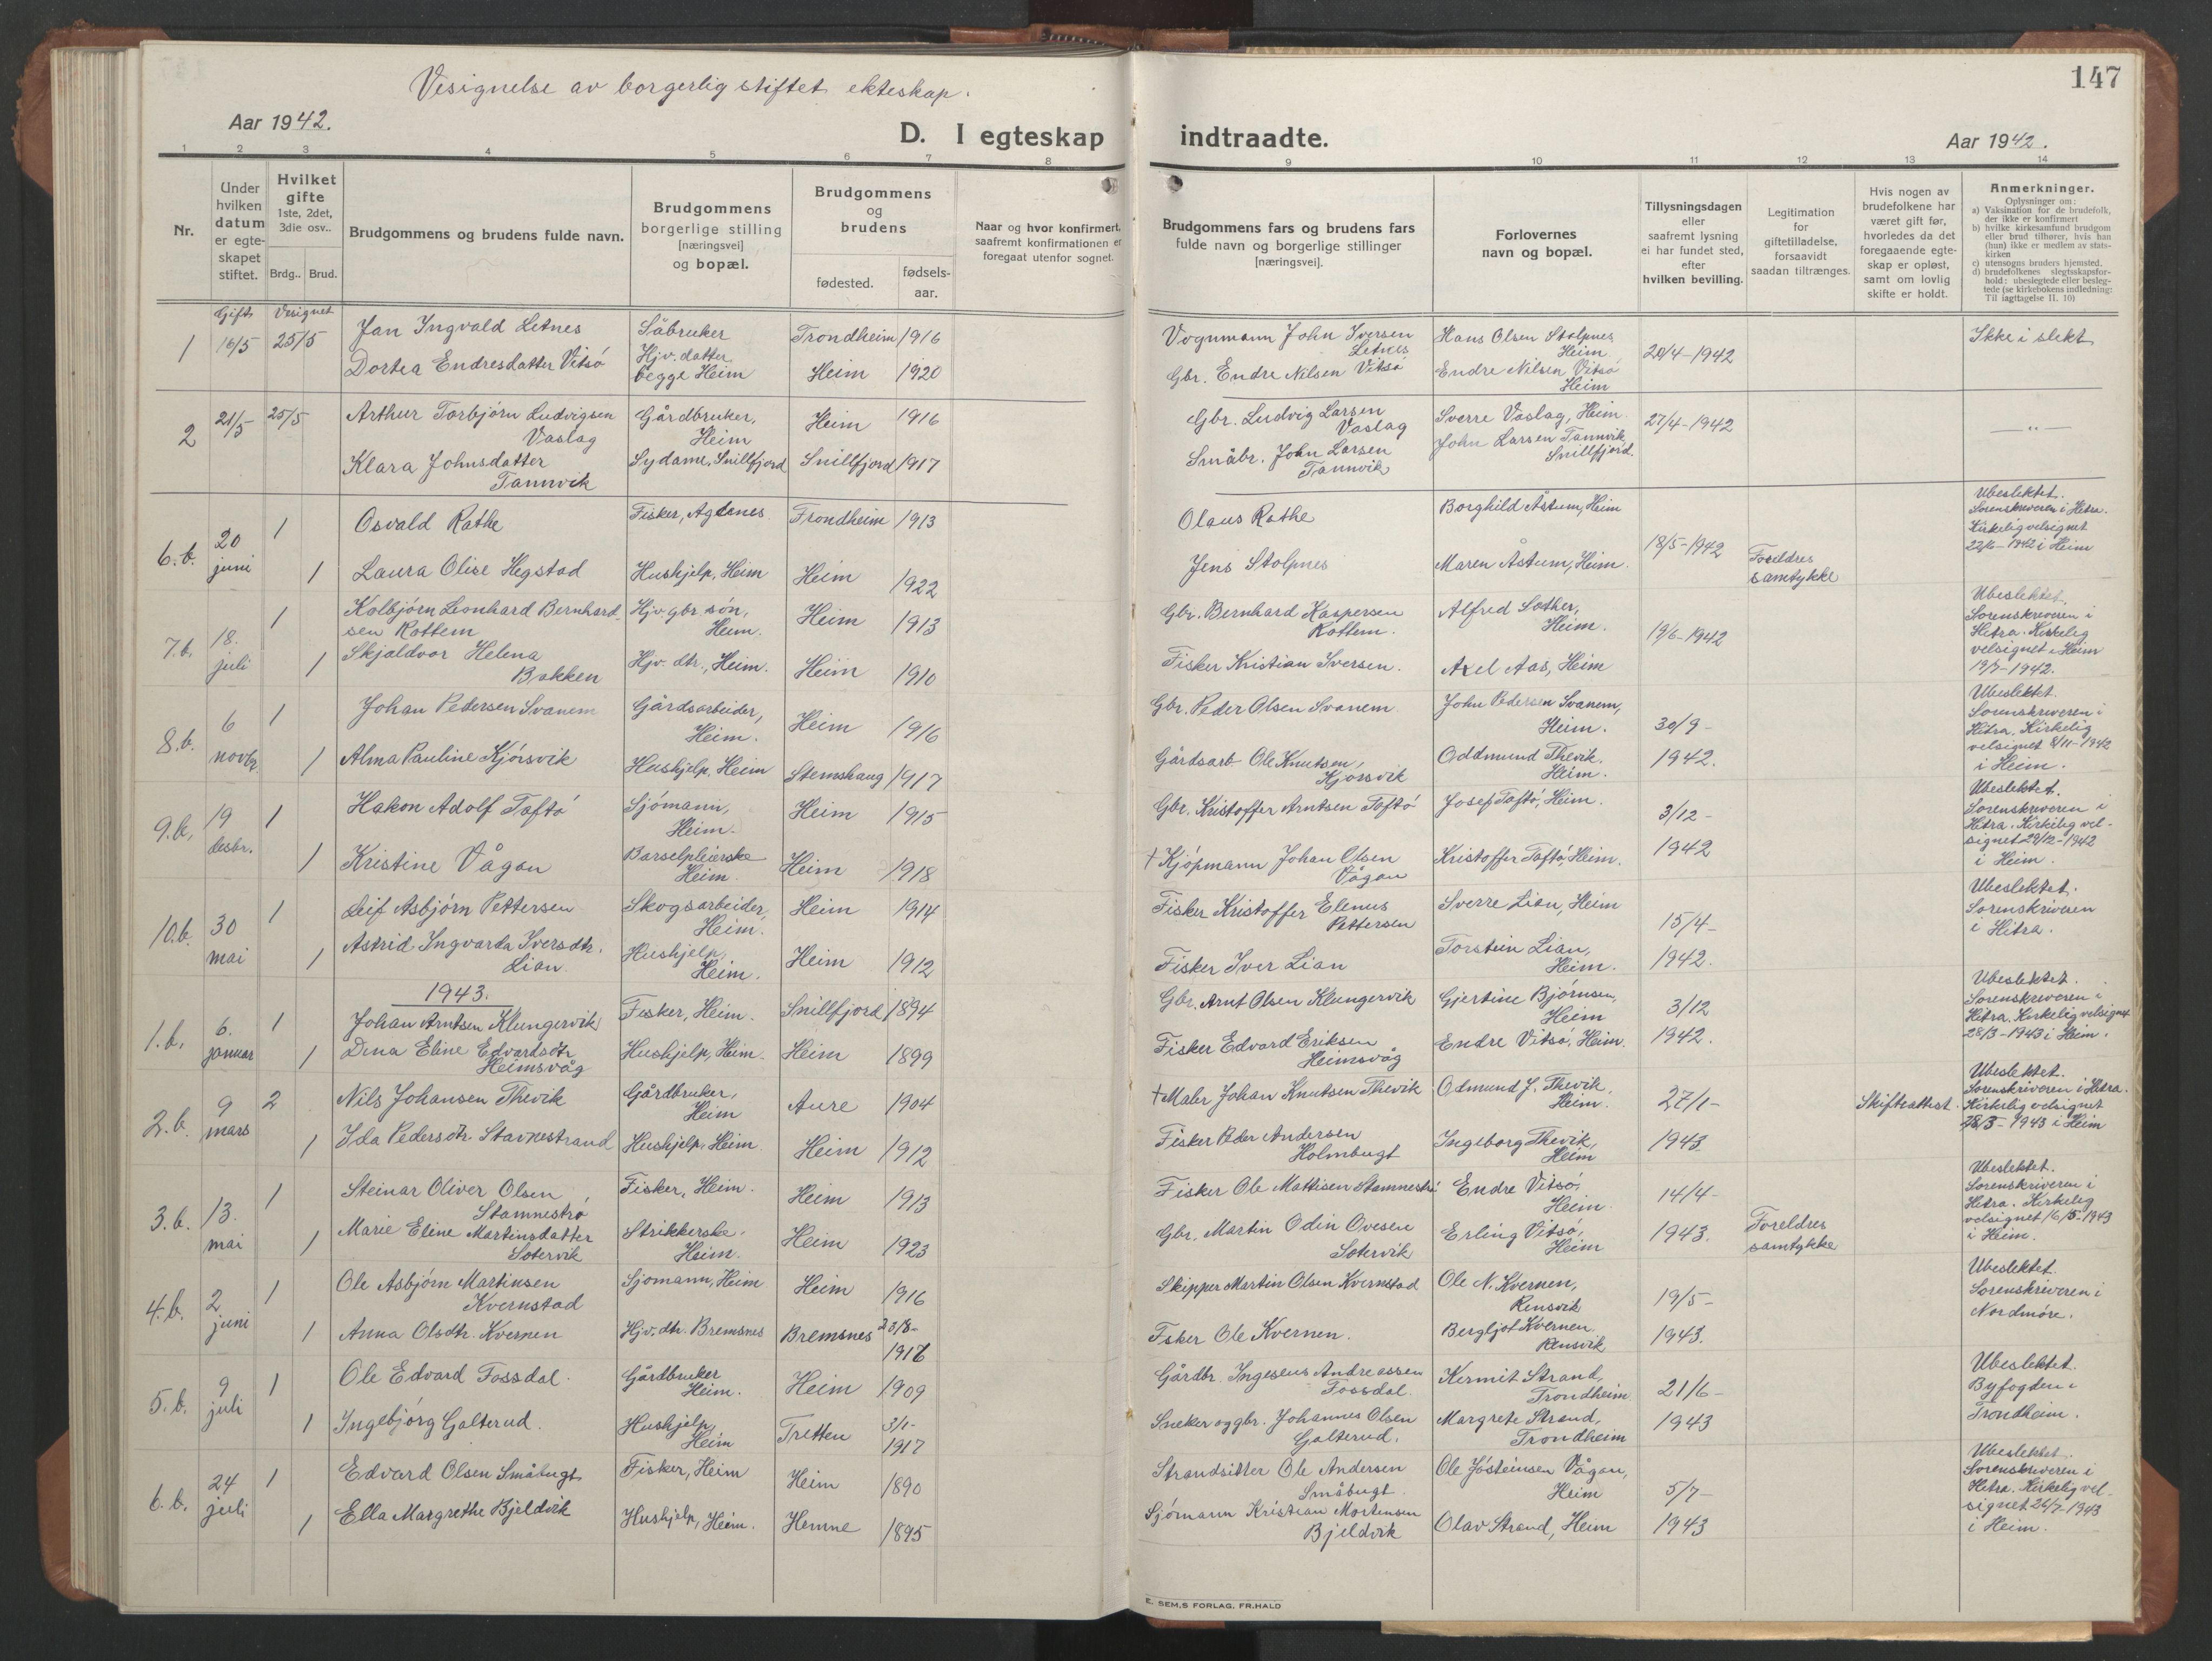 147
Visignelse av borgerlig stiftet ekteskap.
Aar 1942.
D. I egteskap indtraadte.
Aar 1942.
1 2 3 4 5 6 7 8 9 10 11 12 13 14
Nr.
Under hvilken datum er egteskapet stiftet.
Hvilket gifte 1ste, 2det, 3die osv..
Brdg.. Brud.
Brudgommens og brudens fulde navn.
Brudgommens borgerlige stilling [næringsvei] og bopæl.
Brudgommens og brudens
fødested.
fødselsaar.
Naar og hvor konfirmert, saafremt konfirmationen er foregaat utenfor sognet.
Brudgommens fars og brudens fars fulde navn og borgerlige stillinger [næringsvei].
Forlovernes navn og bopæl.
Tillysningsdagen eller saafremt lysning ei har fundet sted, efter hvilken bevilling.
Legitimation for giftetilladelse, forsaavidt saadan tiltrænges.
Hvis nogen av brudefolkene har været gift før, hvorledes da det foregaaende egteskap er opløst, samt om lovlig skifte er holdt.
Anmerkninger.
Oplysninger om:
a) Vaksination for de brudefolk, der ikke er konfirmert
b) hvilke kirkesamfund brudgom eller brud tilhører, hvis han (hun) ikke er medlem av statskirken
c) utensogns bruders hjemsted.
d) brudefolkenes slegtsskapsforhold: ubeslegtede eller beslegtede (se kirkebokens indledning: Til iagttagelse II. 10)
Gift Visignet
1 16/5 25/5 Jan Ingvald Letnes Såbruker Trondheim 1916 Vognmann John Iversen Letnes Hans Olsen Stolpnes Heim 20/4-1942 Ikke i slekt
Dortea Endresdatter Vitsö Hjv. datter begge Heim Heim 1920 Gbr. Endre Nilsen Vitsö Endre Nilsen Vitsö Heim
2 21/5 25/5 Arthur Torbjörn Ludvigsen Vaslag Gårdbruker, Heim Heim 1916 Gbr. Ludvig Larsen Vaslag Sverre Vaslag, Heim 27/4-1942 — „ —
Klara Johnsdatter Tannvik Sydame, Snillfjord Snillfjord 1917 Småbr. John Larsen Tannvik John Larsen Tannvik, Snillfjord.
6.b. 20 juni 1 Osvald Rathe Fisker, Agdenes Trondheim 1913 Olaus Rathe Borghild Åstum, Heim 18/5-1942 Ubeslektet. Sorenskriveren i Hitra. Kirkelig velsignet 22/6-1942 i Heim
1 Laura Olise Hegstad Hushjelp, Heim Heim 1922 Jens Stolpnes Maren Åstum, Heim. Foreldres samtykke
7.b. 18. juli 1 Kolbjörn Leonhard Bernhardsen Rottem Hjv. gbr sön, Heim. Heim 1913 Gbr. Bernhard Kaspersen Rottem. Alfred Sæther, Heim. 19/6-1942 Ubeslektet. Sorenskriveren i Hitra. Kirkelig velsignet i Heim 19/7-1942.
1 Skjaldvor Helena Bakken Hjv. dtr., Heim. Heim 1910 Fisker Kristian Iversen. Axel Aas, Heim
8.b. 6 novbr. 1 Johan Pedersen Svanem Gårdsarbeider, Heim. Heim 1916 Gbr. Peder Olsen Svanem John Pedersen Svanem, Heim. 30/9-1942. Ubeslektet. Sorenskriveren i Hitra. Kirkelig velsignet 8/11-1942 i Heim.
1 Alma Pauline Kjörsvik Hushjelp, Heim Stemshaug 1917 Gårdsarb Ole Knutsen, Kjörsvik Oddmund Thevik. Heim.
9.b. 19 desbr. 1 Hakon Adolf Taftö Sjömann, Heim. Heim 1915 Gbr. Kristoffer Arntsen Taftö Josef Taftö, Heim. 3/12-1942 Ubeslektet. Sorenskriveren i Hitra. Kirkelig velsignet 29/12-1942 i Heim.
1 Kristine Vågan Barselpleierske Heim. Heim 1918 † Kjöpmann Johan Olsen Vågan Kristoffer Taftö, Heim.
10.b. 30 mai 1 Leif Asbjörn Pettersen Skogsarbeider, Heim. Heim 1914 Fisker Kristoffer Elenus Pettersen Sverre Lian, Heim 15/4-1942. Ubeslektet. Sorenskriveren i Hitra.
1 Astrid Ingvarda Iversdtr. Lian Hushjelp, Heim. Heim 1912 Fisker Iver Lian Torstein Lian, Heim.
1943.
1.b. 6. januar 1 Johan Arntsen Klungervik Fisker, Heim. Snillfjord 1894 Gbr. Arnt Olsen Klungervik Gjertine Bjørnsen, Heim 3/12 1942. Ubeslektet. Sorenskriveren i Hitra. Kirkelig velsignet 28/3-1943 i Heim.
1 Dina Eline Edvardsdtr Heimsvåg Hushjelp, Heim. Heim 1899 Fisker Edvard Eriksen Heimsvåg Endre Vitsö, Heim.
2.b. 9 mars 2 Nils Johansen Thevik Gårdbruker, Heim Aure 1904 † Maler Johan Knutsen Thevik Odmund J. Thevik, Heim. 27/1-1943 Skifteattest. Ubeslektet. Sorenskriveren i Hitra. Kirkelig velsignet 28/3-1943 i Heim
1 Ida Pedersdtr. Stavnestrand Hushjelp, Heim Heim 1912 Fisker Peder Andersen Holmbugt Ingeborg Thevik, Heim
3.b. 13. mai 1 Steinar Oliver Olsen Stamneströ Fisker, Heim. Heim 1913 Fisker Ole Mattisen Stamneströ Endre Vitsö, Heim. 14/4-1943. Ubeslektet. Sorenskriveren i Hitra. Kirkelig velsignet 16/5-1943 i Heim.
1 Marie Eline Martinsdatter Sotervik Strikkerske. Heim. Heim 1923 Gbr. Martin Odin Ovesen Sotervik Erling Vitsö, Heim Foreldres samtykke
4.b. 2 juni 1 Ole Asbjörn Martinsen Kvernstad Sjömann, Heim Heim 1916 Skipper Martin Olsen Kvernstad Ole N. Kvernen, Rensvik 19/5-1943. Ubeslektet. Sorenskriveren i Nordmöre.
1 Anna Olsdtr. Kvernen Hjv. dtr. Bremsnes Bremsnes Fsker Ole Kvernen. Bergljot Kvernen. Rensvik
5.b. 9 juli 1 Ole Edvard Fossdal. Gårdbruker Heim. Heim 1909 Gårdbr. Andreassen Fossdal. Kermit Strand, Trondheim 21/6-1943 Ubeslektet. Byfogden i Trondheim.
1 Ingebjörg Galterud. Hushjelp Heim Tretten 3/1-1917 Sneker og gbr. Johannes Olsen Galterud. Margrete Strand, Trondheim
6.b. 24 juli 1 Edvard Olsen Småbugt Fisker, Heim Heim 1890 Strandsitter Ole Andersen Småbugt Ole Jösteinsen Vågan, Heim 5/7-1943 Ubeslektet. Sorenskriveren i Hitra. Kirkelig velsignet 26/7-1943 i Heim.
1 Ella Margrethe Bjeldvik Hushjelp, Heim. Hemne 1895 Sjömann Kristian Mortensen Bjeldvik Olav Strand, Heim
E. SEM,S FORLAG, FR.HALD